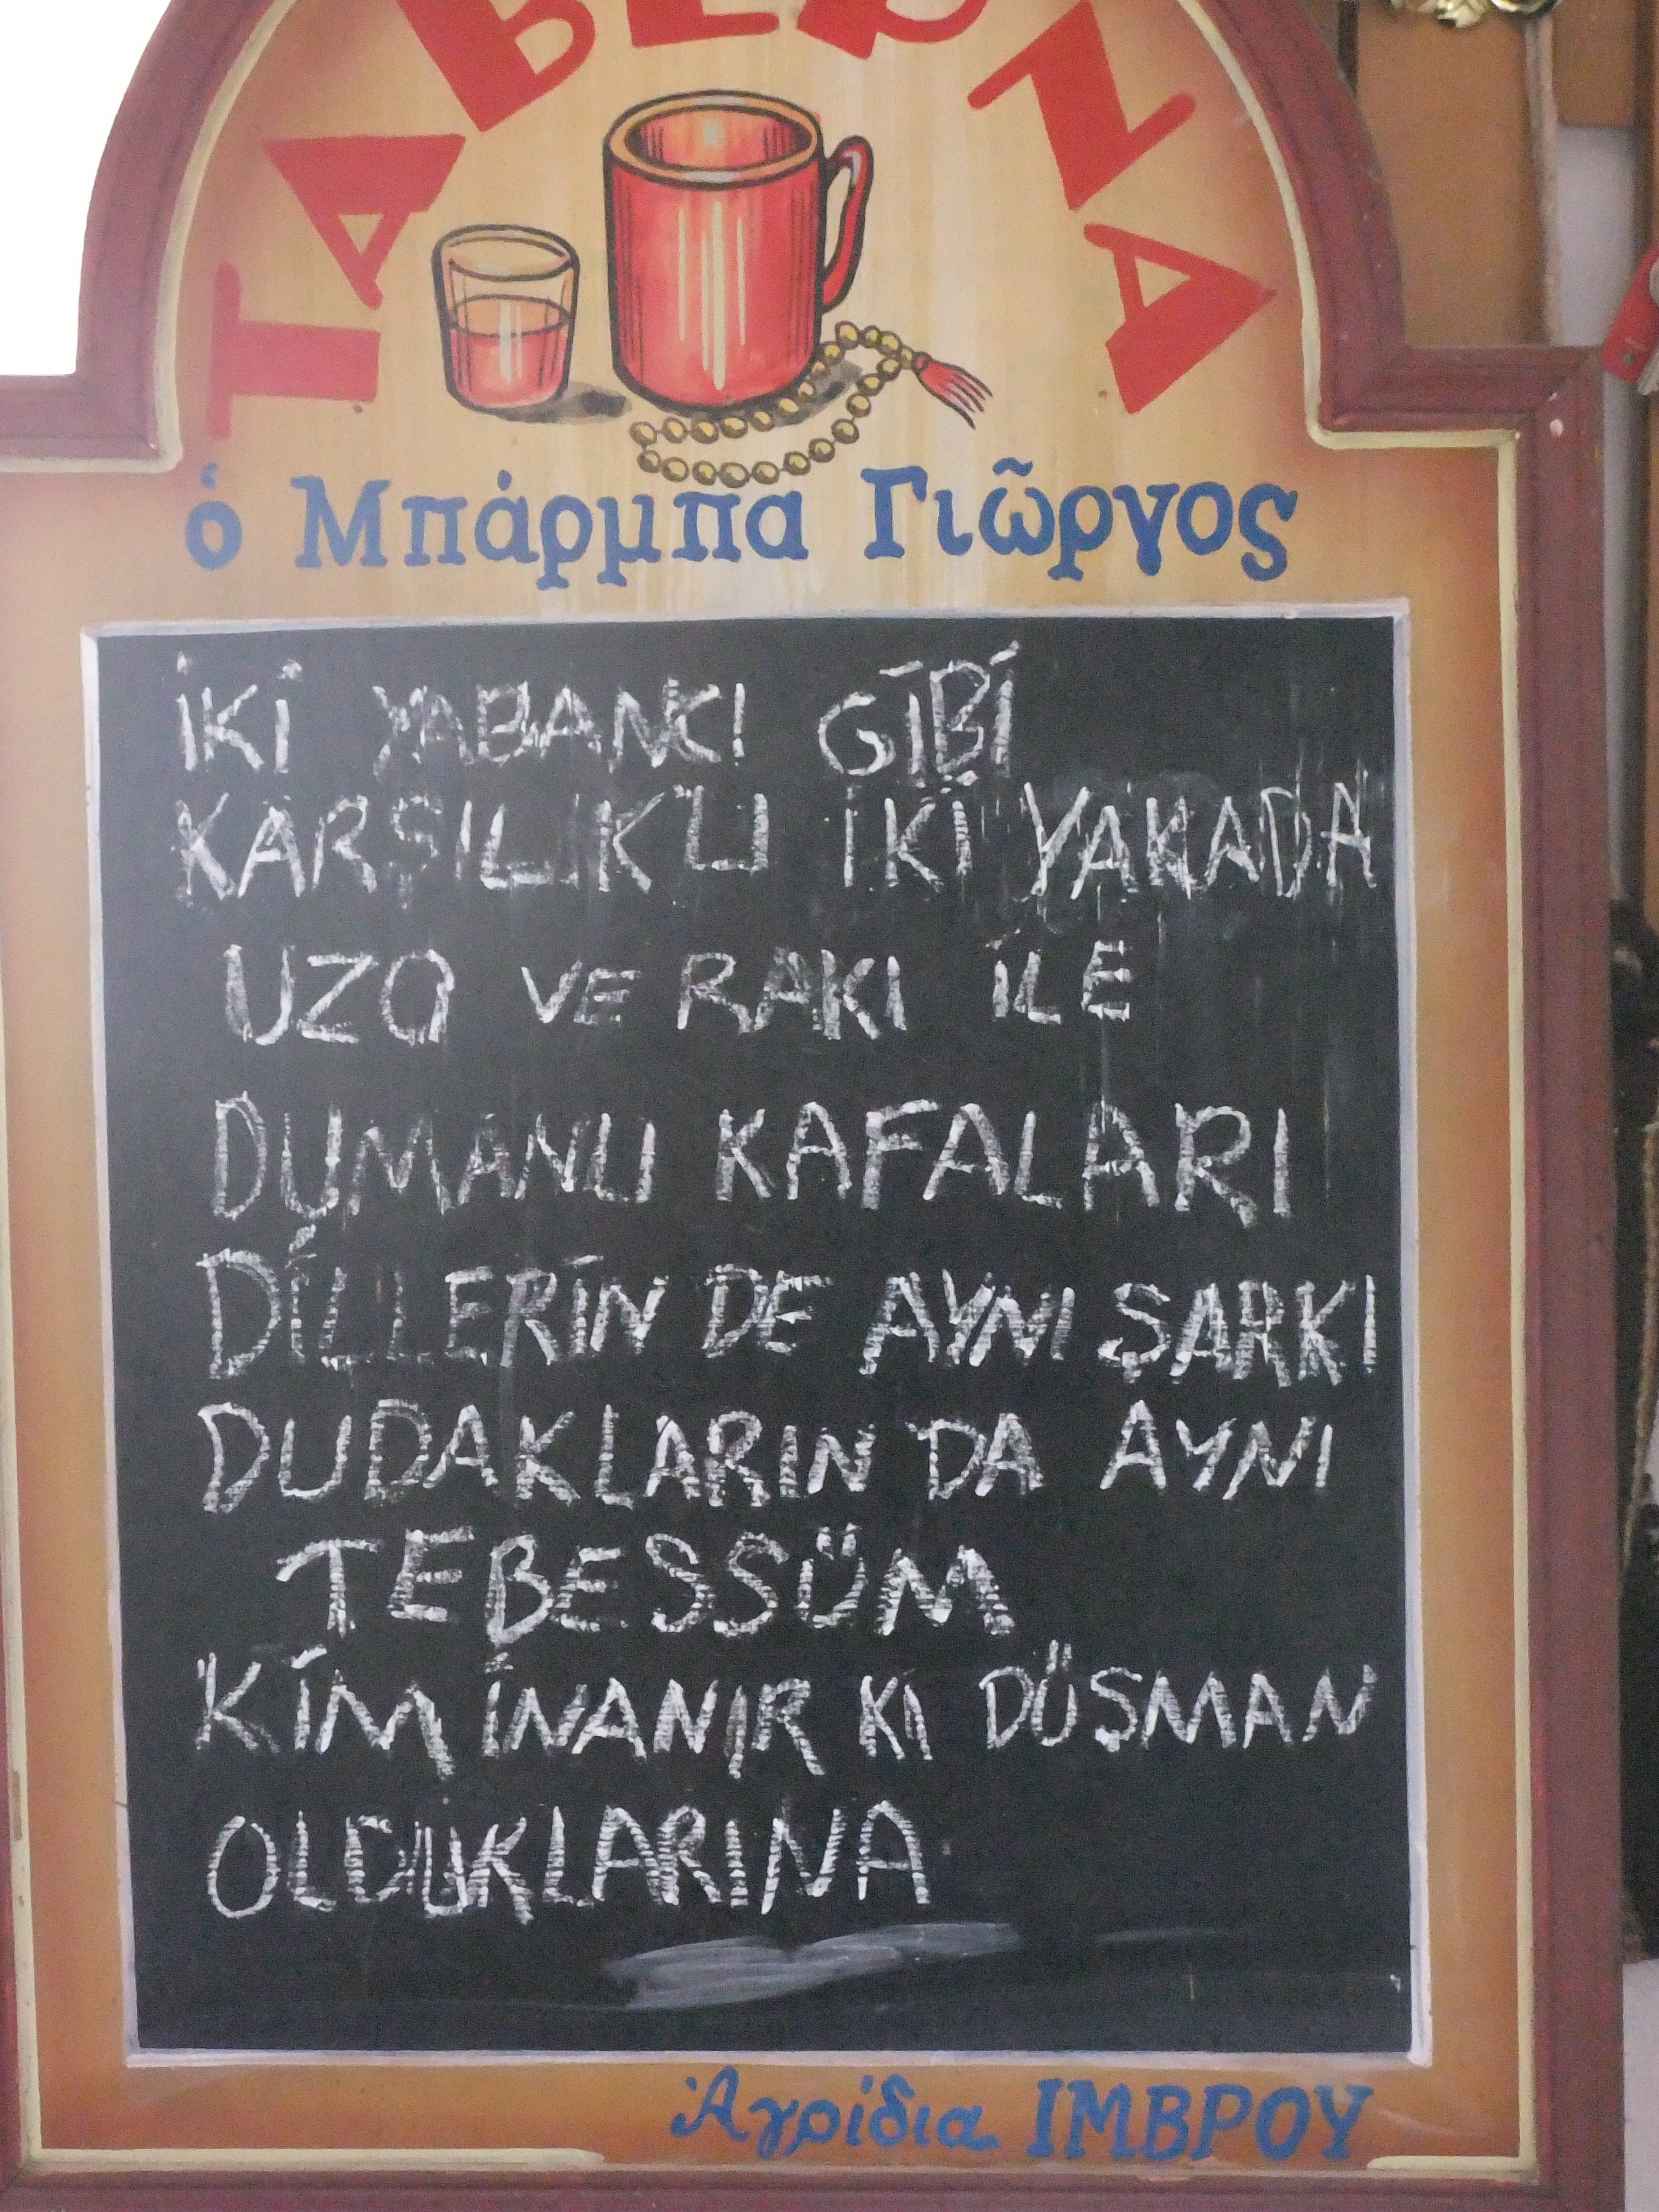 ΤΑΒΕΡΝΑ
ὁ Μπάρμπα Γιῶργος
İKİ YABANCI GİBİ
KARŞILIKLI İKİ YAKADA
UZO VE RAKI İLE
DUMANLI KAFALARI
DİLLERİN DE AYNI ŞARKI
DUDAKLARIN DA AYNI
TEBESSÜM
KİM İNANIR Kİ DÜŞMAN
OLDUKLARINA
Ἀγρίδια ΙΜΒΡΟΥ